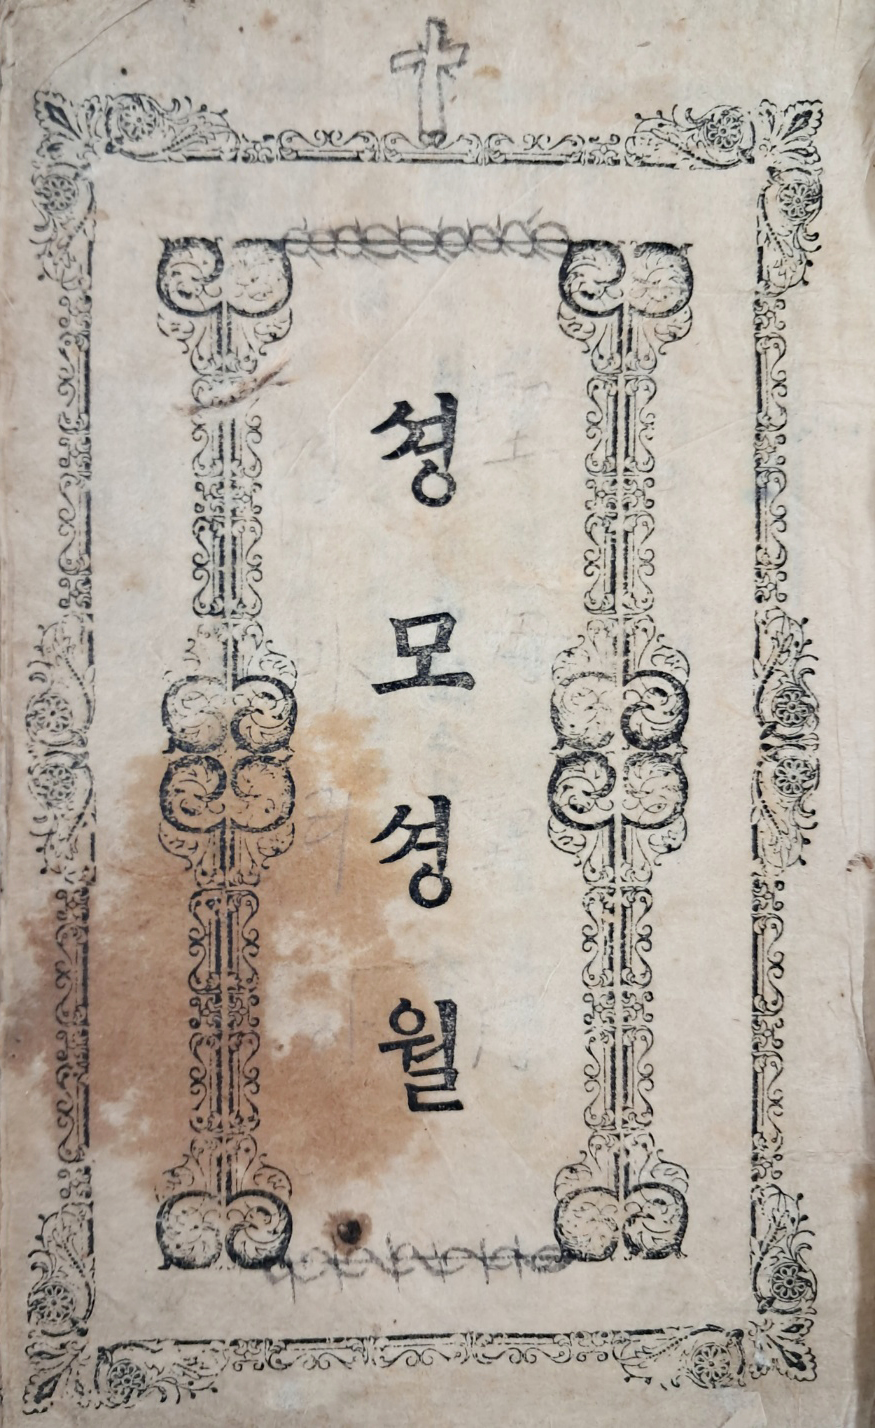 셩모셩월